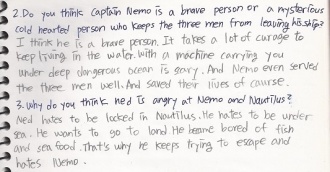 2. Do you think Captain Nemo is a brave person or a mysterious
cold hearted person who keeps the three men from leaving his ship?
I think he is a brave person. It takes a lot of curage to
keep living in the water. With a machine carrying you
under deep dangerous ocean is scary. And Nemo even served
the three men well. And saved their lives of caurse.
3. Why do you think ned is angry at Nemo and Nautilus?
Ned hates to be locked in Nautilus. He hates to be under
sea. He wants to go to land. He became bored of fish
and sea food. That's why he keeps trying to escape and
hates Nemo.